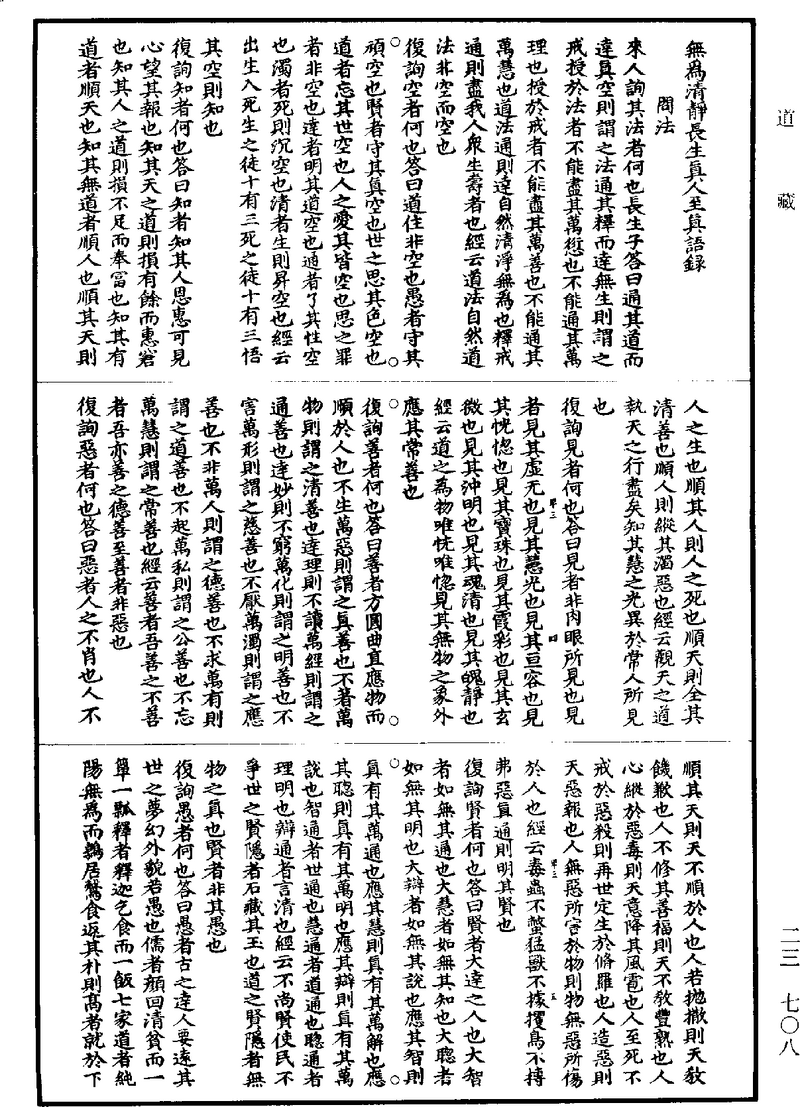 道藏
二三 七〇八
無為清靜長生真人至真語錄
問法
來人詢其法者何也長生子答曰通其道而
達真空則謂之法通其釋而達無生則謂之
戒授於法者不能盡其萬愆也不能通其萬
理也授於戒者不能盡其萬善也不能通其
萬慧也道法通則達自然清淨無為也釋戒
通則盡我人衆生壽者也經云道法自然道
法非空而空也
復詢空者何也答曰道住非空也愚者守其
頑空也賢者守其真空也世之思其色空也
道者忘其世空也人之愛其皆空也思之罪
者非空也達者明其道空也通者了其性空
也濁者死則沉空也清者生則昇空也經云
出生入死生之徒十有三死之徒十有三悟
其空則知也
復詢知者何也答曰知者知其人恩惠可見
心望其報也知其天之道則損有餘而惠窘
也知其人之道則損不足而奉富也知其有
道者順天也知其無道者順人也順其天則
人之生也順其人則人之死也順天則全其
清善也順人則縱其濁惡也經云觀天之道
執天之行盡矣知其慧之光異於常人所見
也
復詢見者何也答曰見者非肉眼所見也見
者見其虛无也見其慧光也見其亘容也見
其恍惚也見其寶珠也見其霞彩也見其玄
微也見其沖明也見其魂清也見其魄靜也
經云道之為物唯恍唯惚見其無物之象外
應其常善也
復詢善者何也答曰善者方圓曲直應物而
順於人也不生萬惡則謂之真善也不著萬
物則謂之清善也達理則不讀萬經則謂之
通善也達妙則不窮萬化則謂之明善也不
害萬形則謂之慈善也不厭萬濁則謂之應
善也不非萬人則謂之德善也不求萬有則
謂之道善也不起萬私則謂之公善也不忘
萬慧則謂之常善也經云善者吾善之不善
者吾亦善之德善至善者非惡也
復詢惡者何也答曰惡者人之不肖也人不
順其天則天不順於人也人若拋撒則天教
饑歉也人不修其善福則天不教豐熟也人
心縱於惡毒則天意降其風雹也人至死不
戒於惡殺則再世定生於脩羅也人造惡則
天惡報也人無惡所害於物則物無惡所傷
於人也經云毒蟲不螫猛獸不據攫鳥不搏
弗惡真通則明其賢也
復詢賢者何也答曰賢者大達之人也大智
者如無其通也大慧者如無其知也大聰者
如無其明也大辯者如無其說也應其智則
真有其萬通也應其慧則真有其萬解也應
其聰則真有其萬明也應其辯則真有其萬
說也智通者世通也慧通者道通也聰通者
理明也辯通者言清也經云不尚賢使民不
爭世之賢隱者石藏其玉也道之賢隱者無
物之真也賢者非其愚也
復詢愚者何也答曰愚者古之達人要達其
世之夢幻外貌若愚也儒者顏回清貧而一
簞一瓢釋者釋迦乞食而一飯七家道者純
陽無為而鶉居鷇食返其朴則高者就於下